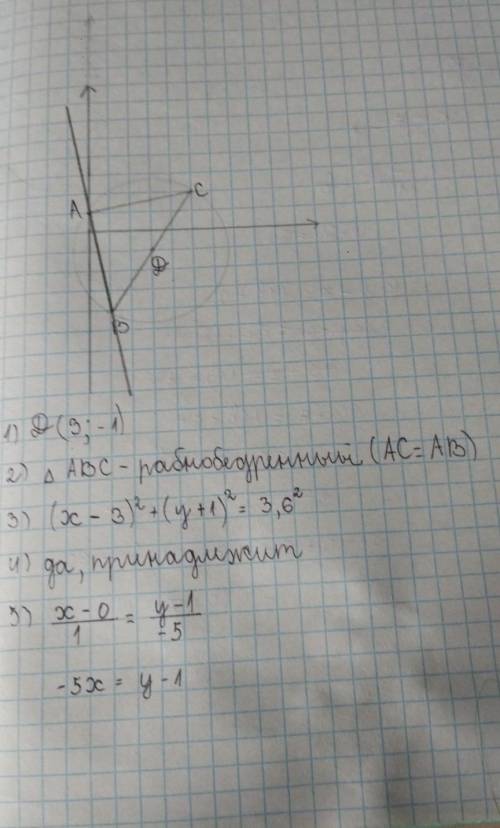 A
C
D
B
1) D(3; -1)
2) △ ABC - равнобедренный (AC = AB)
3) (x - 3)² + (y + 1)² = 3,6²
4) да, принадлежит
5) (x - 0)/1 = (y - 1)/-5
-5x = y - 1